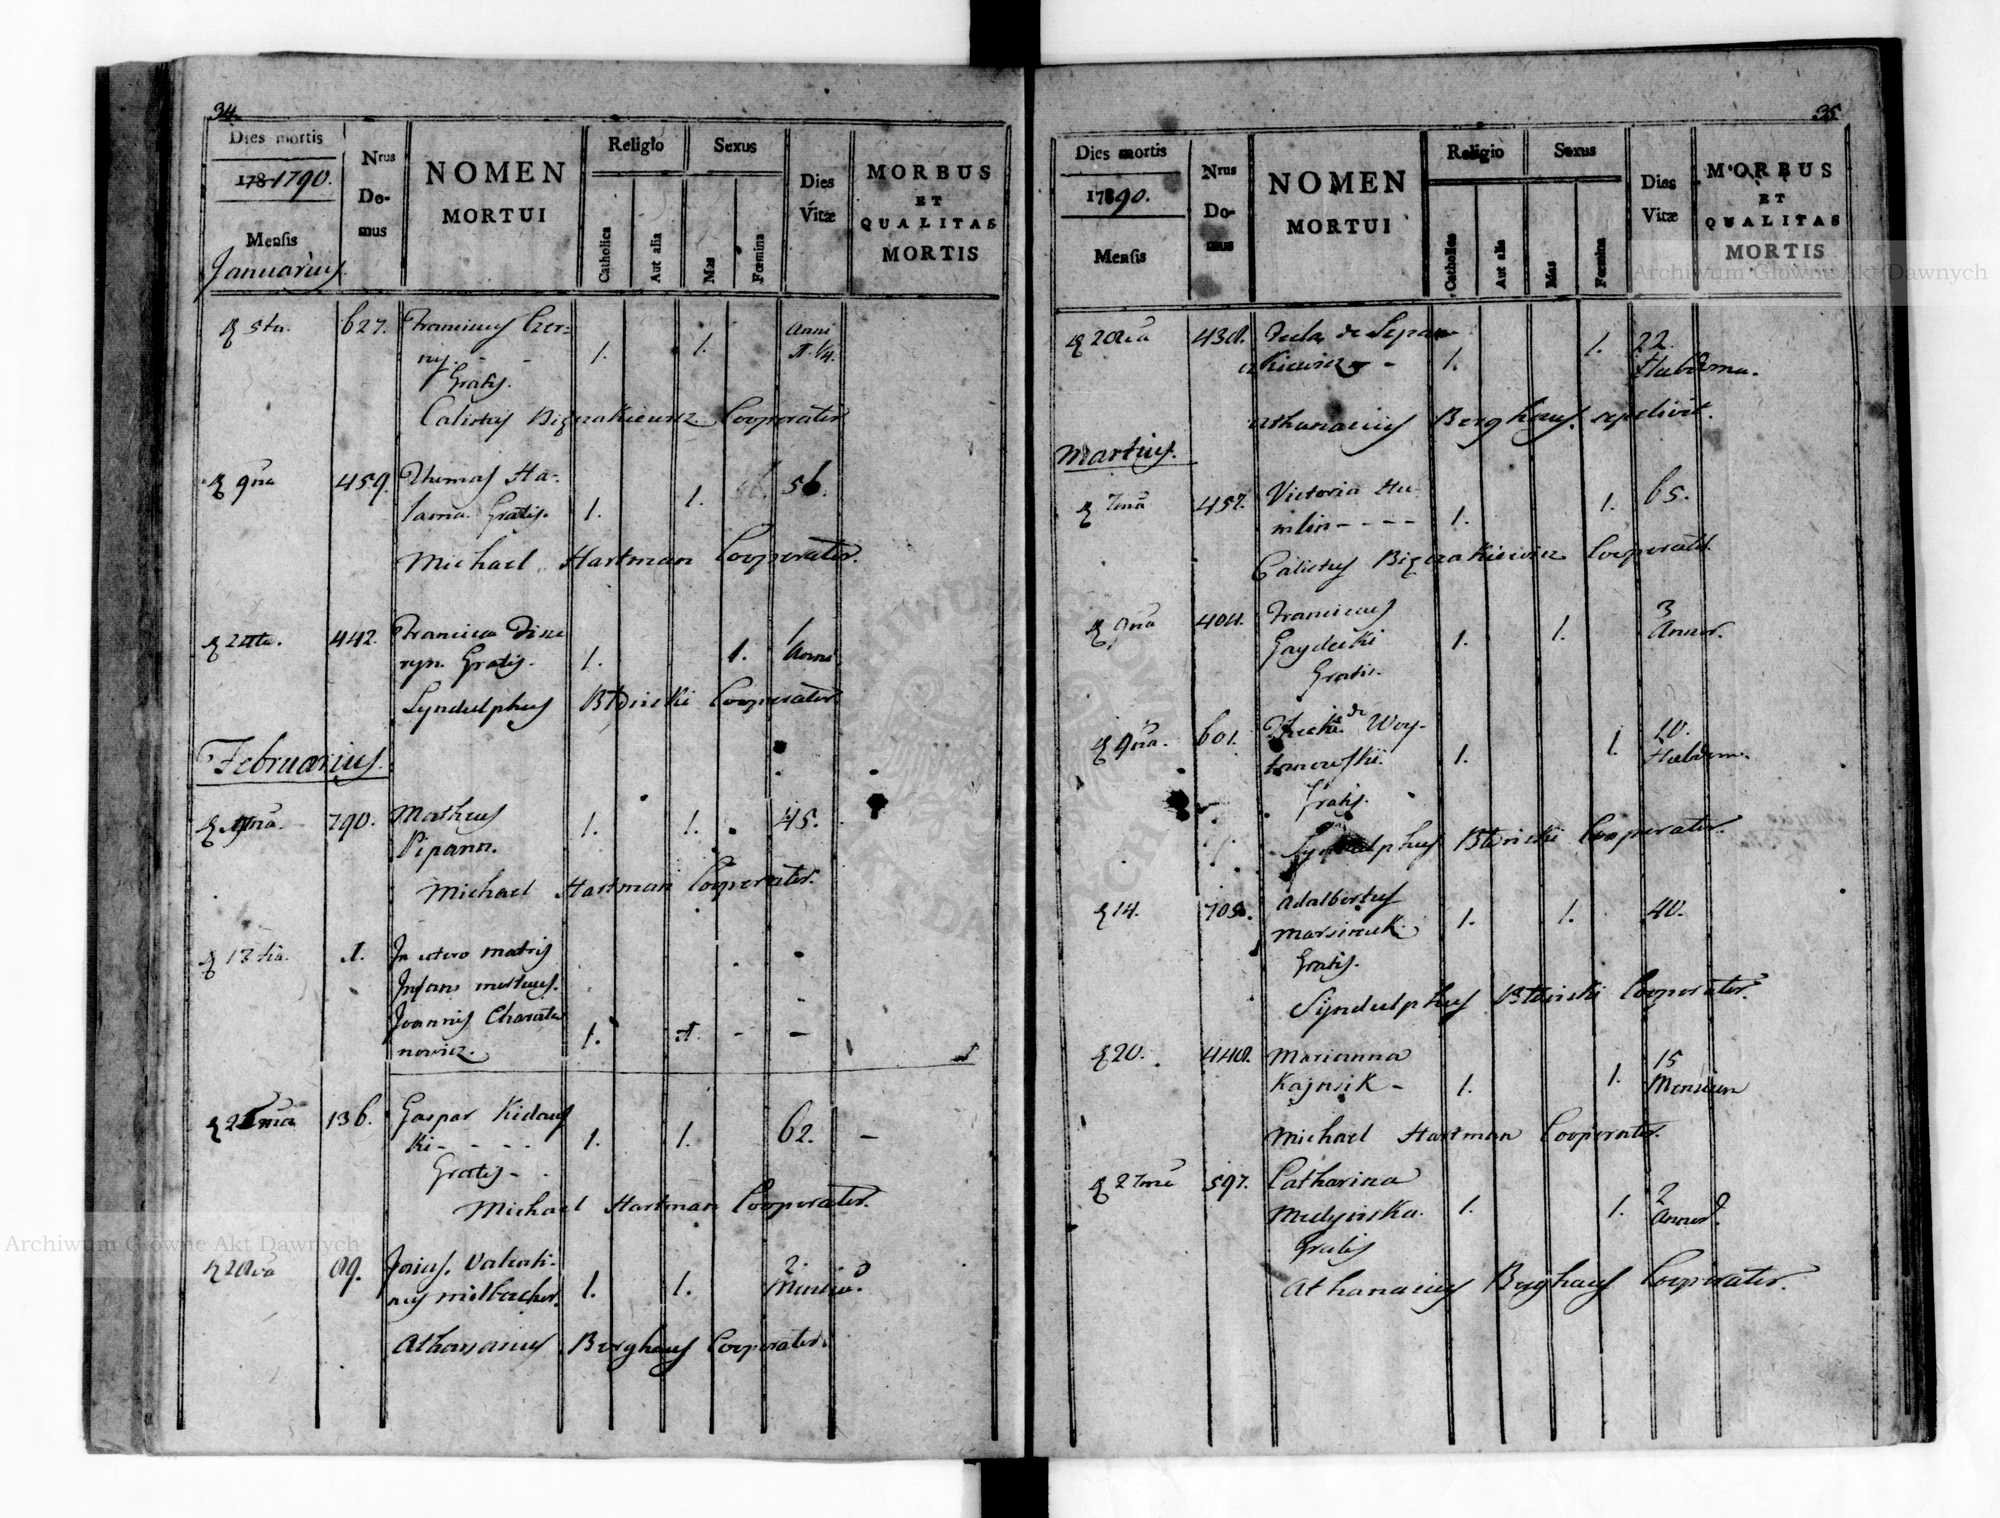 34
Dies mortis
Nrus
Do-
mus
NOMEN
MORTUI
Religio
Sexus
Dies
Vitæ
MORBUS
ET
QUALITAS
MORTIS
178 1790.
Mensis
Januarius
Catholica
Aut alia
Mas
Fœmina
5ta. 627. Franciscus Czer- Anni
ny. - - 1. 1. 1 1/4.
Gratis.
Calistus Cooperator
9na 459. Thomas Ha- 56.
lama Gratis. 1. 1.
Michael Hartman Cooperator.
442. Francisca 1
Gratis. 1. 1. Anni
Syndulphus Cooperator
Februarius.
790. Matheus 1. 1. 45.
Pipann.
Michael Hartman Cooperator.
13tia. 1. In utero matris
Infans mortuus.
Joannis
nowicz. 1. 1. - -
136. Gaspar
ki - - - - 1. 1. 62. -
Gratis -
Michael Hartman Cooperator.
28va 89. Valenti- 2
nus Milbacher. 1. 1.
Athanasius Berghaus Cooperator.
35
Dies mortis
Nrus
Do-
mus
NOMEN
MORTUI
Religio
Sexus
Dies
Vitæ
MORBUS
ET
QUALITAS
MORTIS
1790.
Mensis
Catholica
Aut alia
Mas
Fœmina
28va 438. Tecla de 1. 22
kiewicz - 1. Hebdoma.
Athanasius Berghaus. sepelivit.
Martius.
7ma 457. Victoria Hu- 1. 65.
mlin - - - - 1.
Calistus Cooperator.
404. Franciscus 3
Gaydecki 1. 1. Annor.
Gratis.
9na. 601. de Woy- 10.
1. 1. Hebdom.
Gratis.
Syndulphus Cooperator.
14. 705. Adalbertus 1. 1. 40.
Marsinuk.
Gratis.
Syndulphus Cooperator.
20. 448. Marianna 15
Kajnsik - 1. 1. Mensium
Michael Hartman Cooperator.
27me 597. Catharina 2
Medynska. 1. 1. Annor.
Gratis
Athanasius Berghaus Cooperator.
Archiwum Główne Akt Dawnych
Archiwum Główne Akt Dawnych